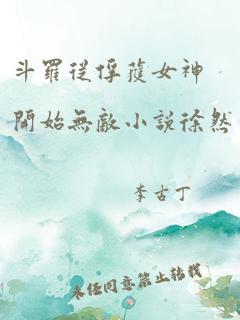 斗羅從俘獲女神
開始無敵小說徐然
李古丁
未经同意禁止转载